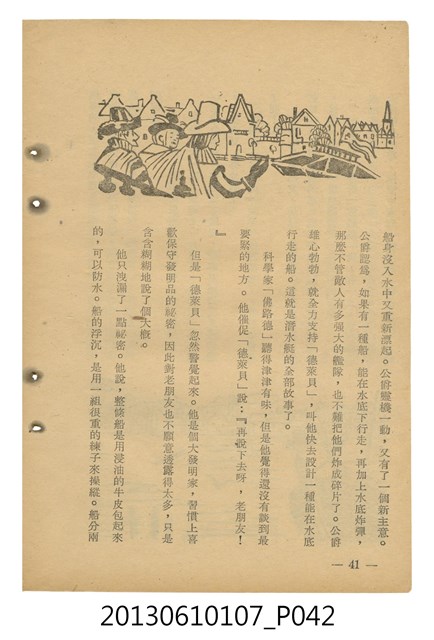 船身沒入水中又重新漂起。公爵靈機一動，又有了一個新主意。
公爵認爲，如果有一種船，能在水底下行走，再加上水底炸彈，
那麼不管敵人有多強大的艦隊，也不難把他們炸成碎片了。公爵
雄心勃勃，就全力支持「德萊貝」，叫他快去設計一種能在水底
行走的船。這就是潛水艇的全部故事了。
科學家「佛路德」聽得津津有味，但是他覺得還沒有談到最
要緊的地方。他催促「德萊貝」說：『再說下去呀，老朋友！
』
但是「德萊貝」忽然警覺起來。他是個大發明家，習慣上喜
歡保守發明品的祕密，因此對老朋友也不願意透露得太多，只是
含含糊糊地說了個大概。
他只洩漏了一點祕密。他說，整條船是用浸油的牛皮包起來
的，可以防水。船的浮沉，是用一組很重的練子來操縱。船分兩
— 41 —
20130610107_P042